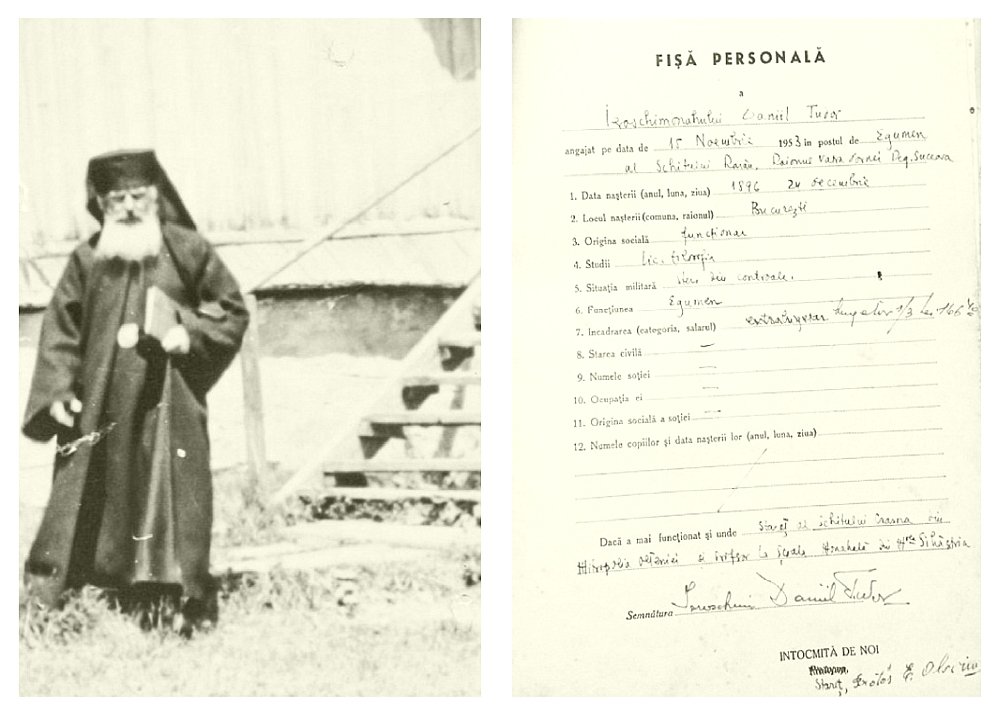 FIȘĂ PERSONALĂ
a
Ieroschimonahului Daniil Tudor
angajat pe data de 15 Noembrie 1953 in postul de Egumen
al Schitului Rarău, Raionul Vatra Dornei Reg. Suceava
1. Data nașterii (anul, luna, ziua) 1896 24 decembrie
2. Locul nașterii (comuna, raionul) București
3. Origina socială funcționar
4. Studii Lic.
5. Situația militară din controale.
6. Funcțiunea Egumen
7. Incadrarea (categoria, salarul) 1/3 Lei 166
8. Starea civilă —
9. Numele soției —
10. Ocupația ei —
11. Origina socială a soției —
12. Numele copiilor și data nașterii lor (anul, luna, ziua)
Dacă a mai funcționat și unde Stareț al schitului Crasna din
Mitropolia Olteniei și la Sihăstria
Semnătura Ieroschim Daniil Tudor
INTOCMITĂ DE NOI
Stareț,